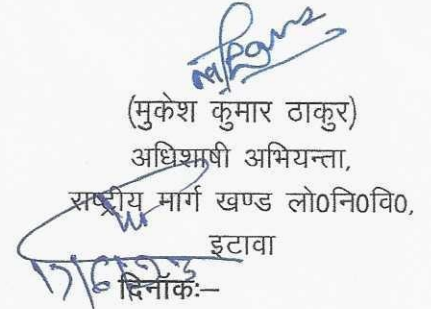 (मुकेश कुमार ठाकुर)
अधिशाषी अभियन्ता,
राष्ट्रीय मार्ग खण्ड लो0नि0वि0,
इटावा
दिनॉकः–